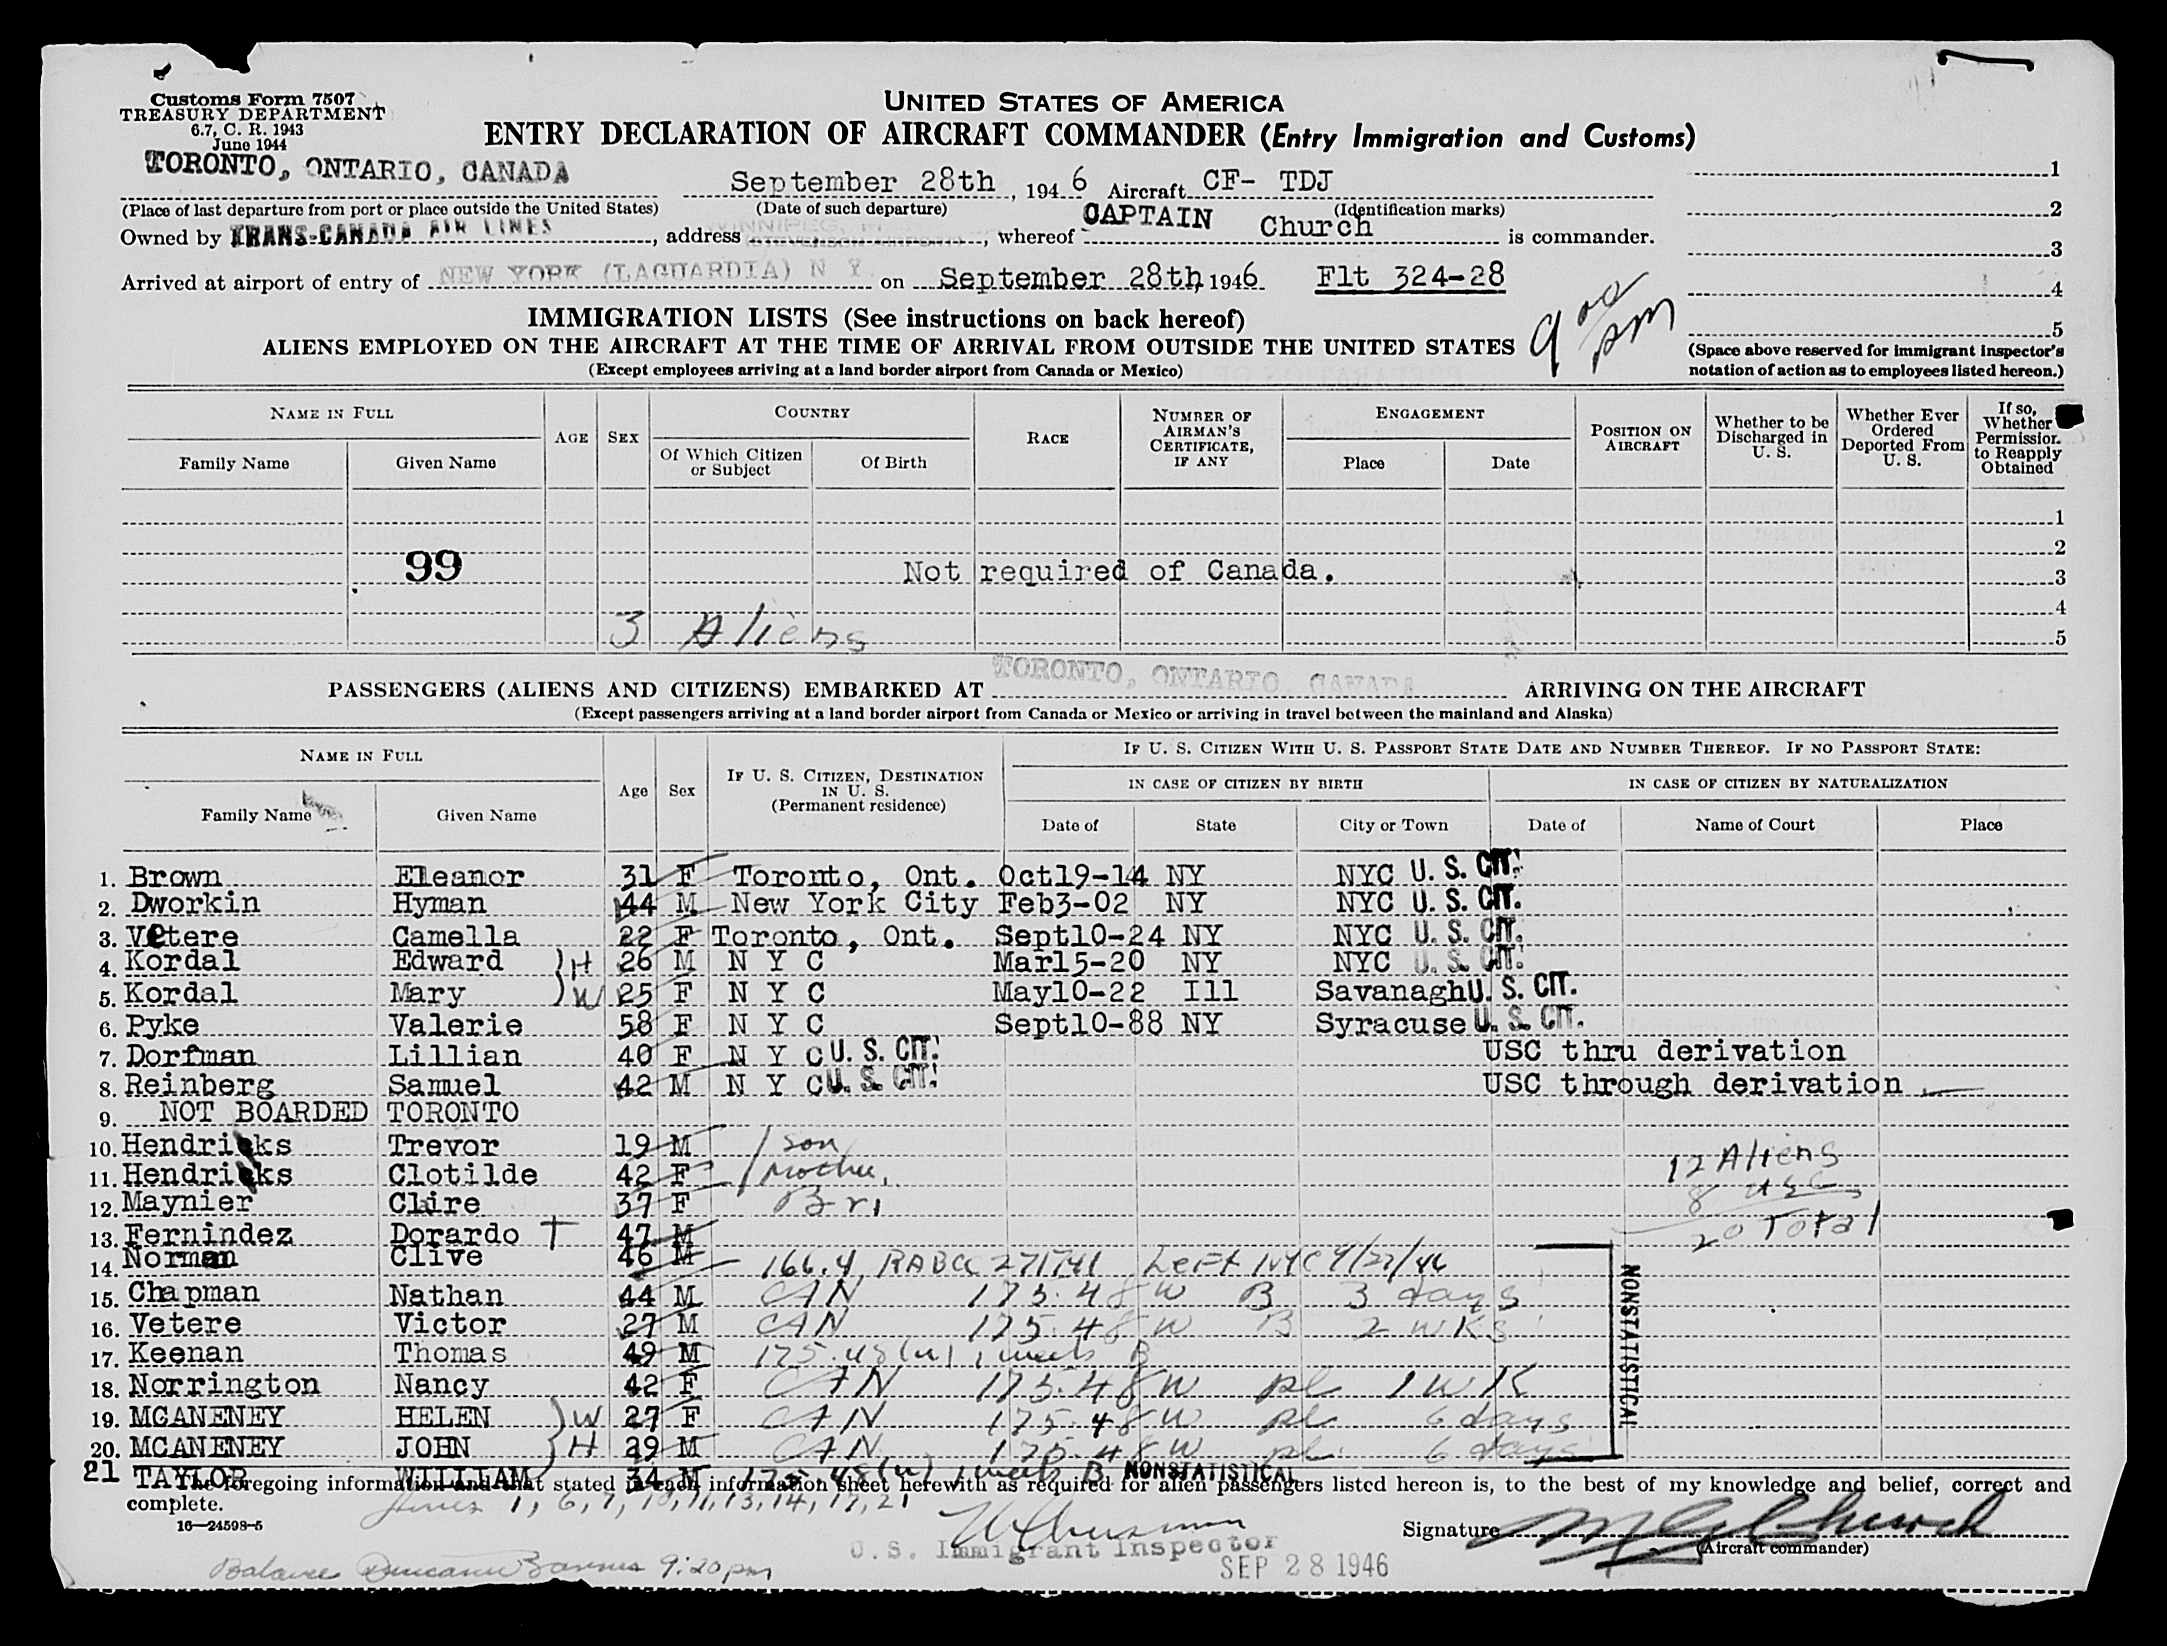 Customs Form 7507
TREASURY DEPARTMENT
6.7, C. R. 1943
June 1944
UNITED STATES OF AMERICA
ENTRY DECLARATION OF AIRCRAFT COMMANDER (Entry Immigration and Customs)
TORONTO, ONTARIO, CANADA September 28th, 1946 Aircraft CF- TDJ
(Place of last departure from port or place outside the United States) (Date of such departure) (Identification marks)
Owned by TRANS-CANADA AIR LINES, address WINNIPEG, (STEVENSON AIRPORT), whereof CAPTAIN Church is commander.
Arrived at airport of entry of NEW YORK (LAGUARDIA) N Y. on September 28th, 1946 Flt 324-28
9 00 pm
1
2
3
4
5
(Space above reserved for immigrant inspector's
notation of action as to employees listed hereon.)
IMMIGRATION LISTS (See instructions on back hereof)
ALIENS EMPLOYED ON THE AIRCRAFT AT THE TIME OF ARRIVAL FROM OUTSIDE THE UNITED STATES
(Except employees arriving at a land border airport from Canada or Mexico)
NAME IN FULL
Family Name Given Name
AGE SEX
COUNTRY
Of Which Citizen or Subject Of Birth
RACE
NUMBER OF AIRMAN'S CERTIFICATE, IF ANY
ENGAGEMENT
Place Date
POSITION ON AIRCRAFT
Whether to be Discharged in U. S.
Whether Ever Ordered Deported From U. S.
If so, Whether Permission to Reapply Obtained
1
2
99 Not required of Canada. 3
4
3 Aliens 5
PASSENGERS (ALIENS AND CITIZENS) EMBARKED AT TORONTO, ONTARIO, CANADA ARRIVING ON THE AIRCRAFT
(Except passengers arriving at a land border airport from Canada or Mexico or arriving in travel between the mainland and Alaska)
NAME IN FULL
Family Name Given Name
Age Sex
IF U. S. CITIZEN, DESTINATION IN U. S. (Permanent residence)
IF U. S. CITIZEN WITH U. S. PASSPORT STATE DATE AND NUMBER THEREOF. IF NO PASSPORT STATE:
IN CASE OF CITIZEN BY BIRTH IN CASE OF CITIZEN BY NATURALIZATION
Date of State City or Town Date of Name of Court Place
1. Brown Eleanor 31 F Toronto, Ont. Oct19-14 NY NYC U. S. CIT.
2. Dworkin Hyman 44 M New York City Feb3-02 NY NYC U. S. CIT.
3. Vetere Camella 22 F Toronto, Ont. Sept10-24 NY NYC U. S. CIT.
4. Kordal Edward H 26 M N Y C Mar15-20 NY NYC U. S. CIT.
5. Kordal Mary W 25 F N Y C May10-22 Ill Savanagh U. S. CIT.
6. Pyke Valerie 58 F N Y C Sept10-88 NY Syracuse U. S. CIT.
7. Dorfman Lillian 40 F N Y C U. S. CIT. USC thru derivation
8. Reinberg Samuel 42 M N Y C U. S. CIT. USC through derivation
9. NOT BOARDED TORONTO
10. Hendricks Trevor 19 M son
11. Hendricks Clotilde 42 F Mother 12 Aliens
12. Maynier Claire 37 F Bri 8 USC
13. Fernindez Dorardo 47 M 20 Total
14. Norman Clive 46 M 166.4 RABCC 271741 Left NYC 9/27/46
15. Chapman Nathan 44 M CAN 175.48W B 3 days
16. Vetere Victor 27 M CAN 175.48W B 2 WKS
17. Keenan Thomas 49 M 175.48(w) 1 week B
18. Norrington Nancy 42 F CAN 175.48W pl 1 WK
19. MCANENEY HELEN W 27 F CAN 175.48W pl 6 days
20. MCANENEY JOHN H 29 M CAN 175.48W pl 6 days
NONSTATISTICAL
21 TAYLOR WILLIAM 34 M 175.48(w) 1 week B NONSTATISTICAL
The foregoing information and that stated in each information sheet herewith as required for alien passengers listed hereon is, to the best of my knowledge and belief, correct and
complete. Lines 1, 6, 7, 10, 11, 13, 14, 17, 21
16—24598-5
U. S. Immigrant Inspector
Signature
(Aircraft commander)
SEP 28 1946
Balance 9:20 pm